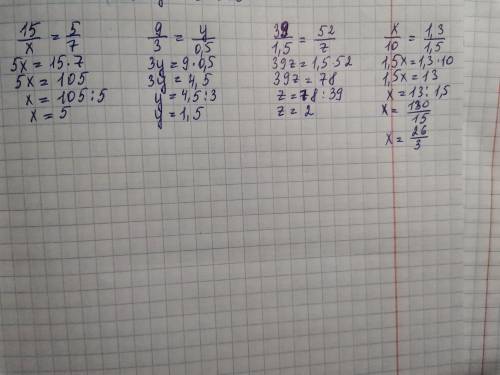 15/x = 5/7
5x = 15·7
5x = 105
x = 105:5
x = 5
9/3 = y/0,5
3y = 9·0,5
3y = 4,5
y = 4,5:3
y = 1,5
39/1,5 = 52/z
39z = 1,5·52
39z = 78
z = 78:39
z = 2
x/10 = 1,3/1,5
1,5x = 1,3·10
1,5x = 13
x = 13:1,5
x = 130/15
x = 26/3